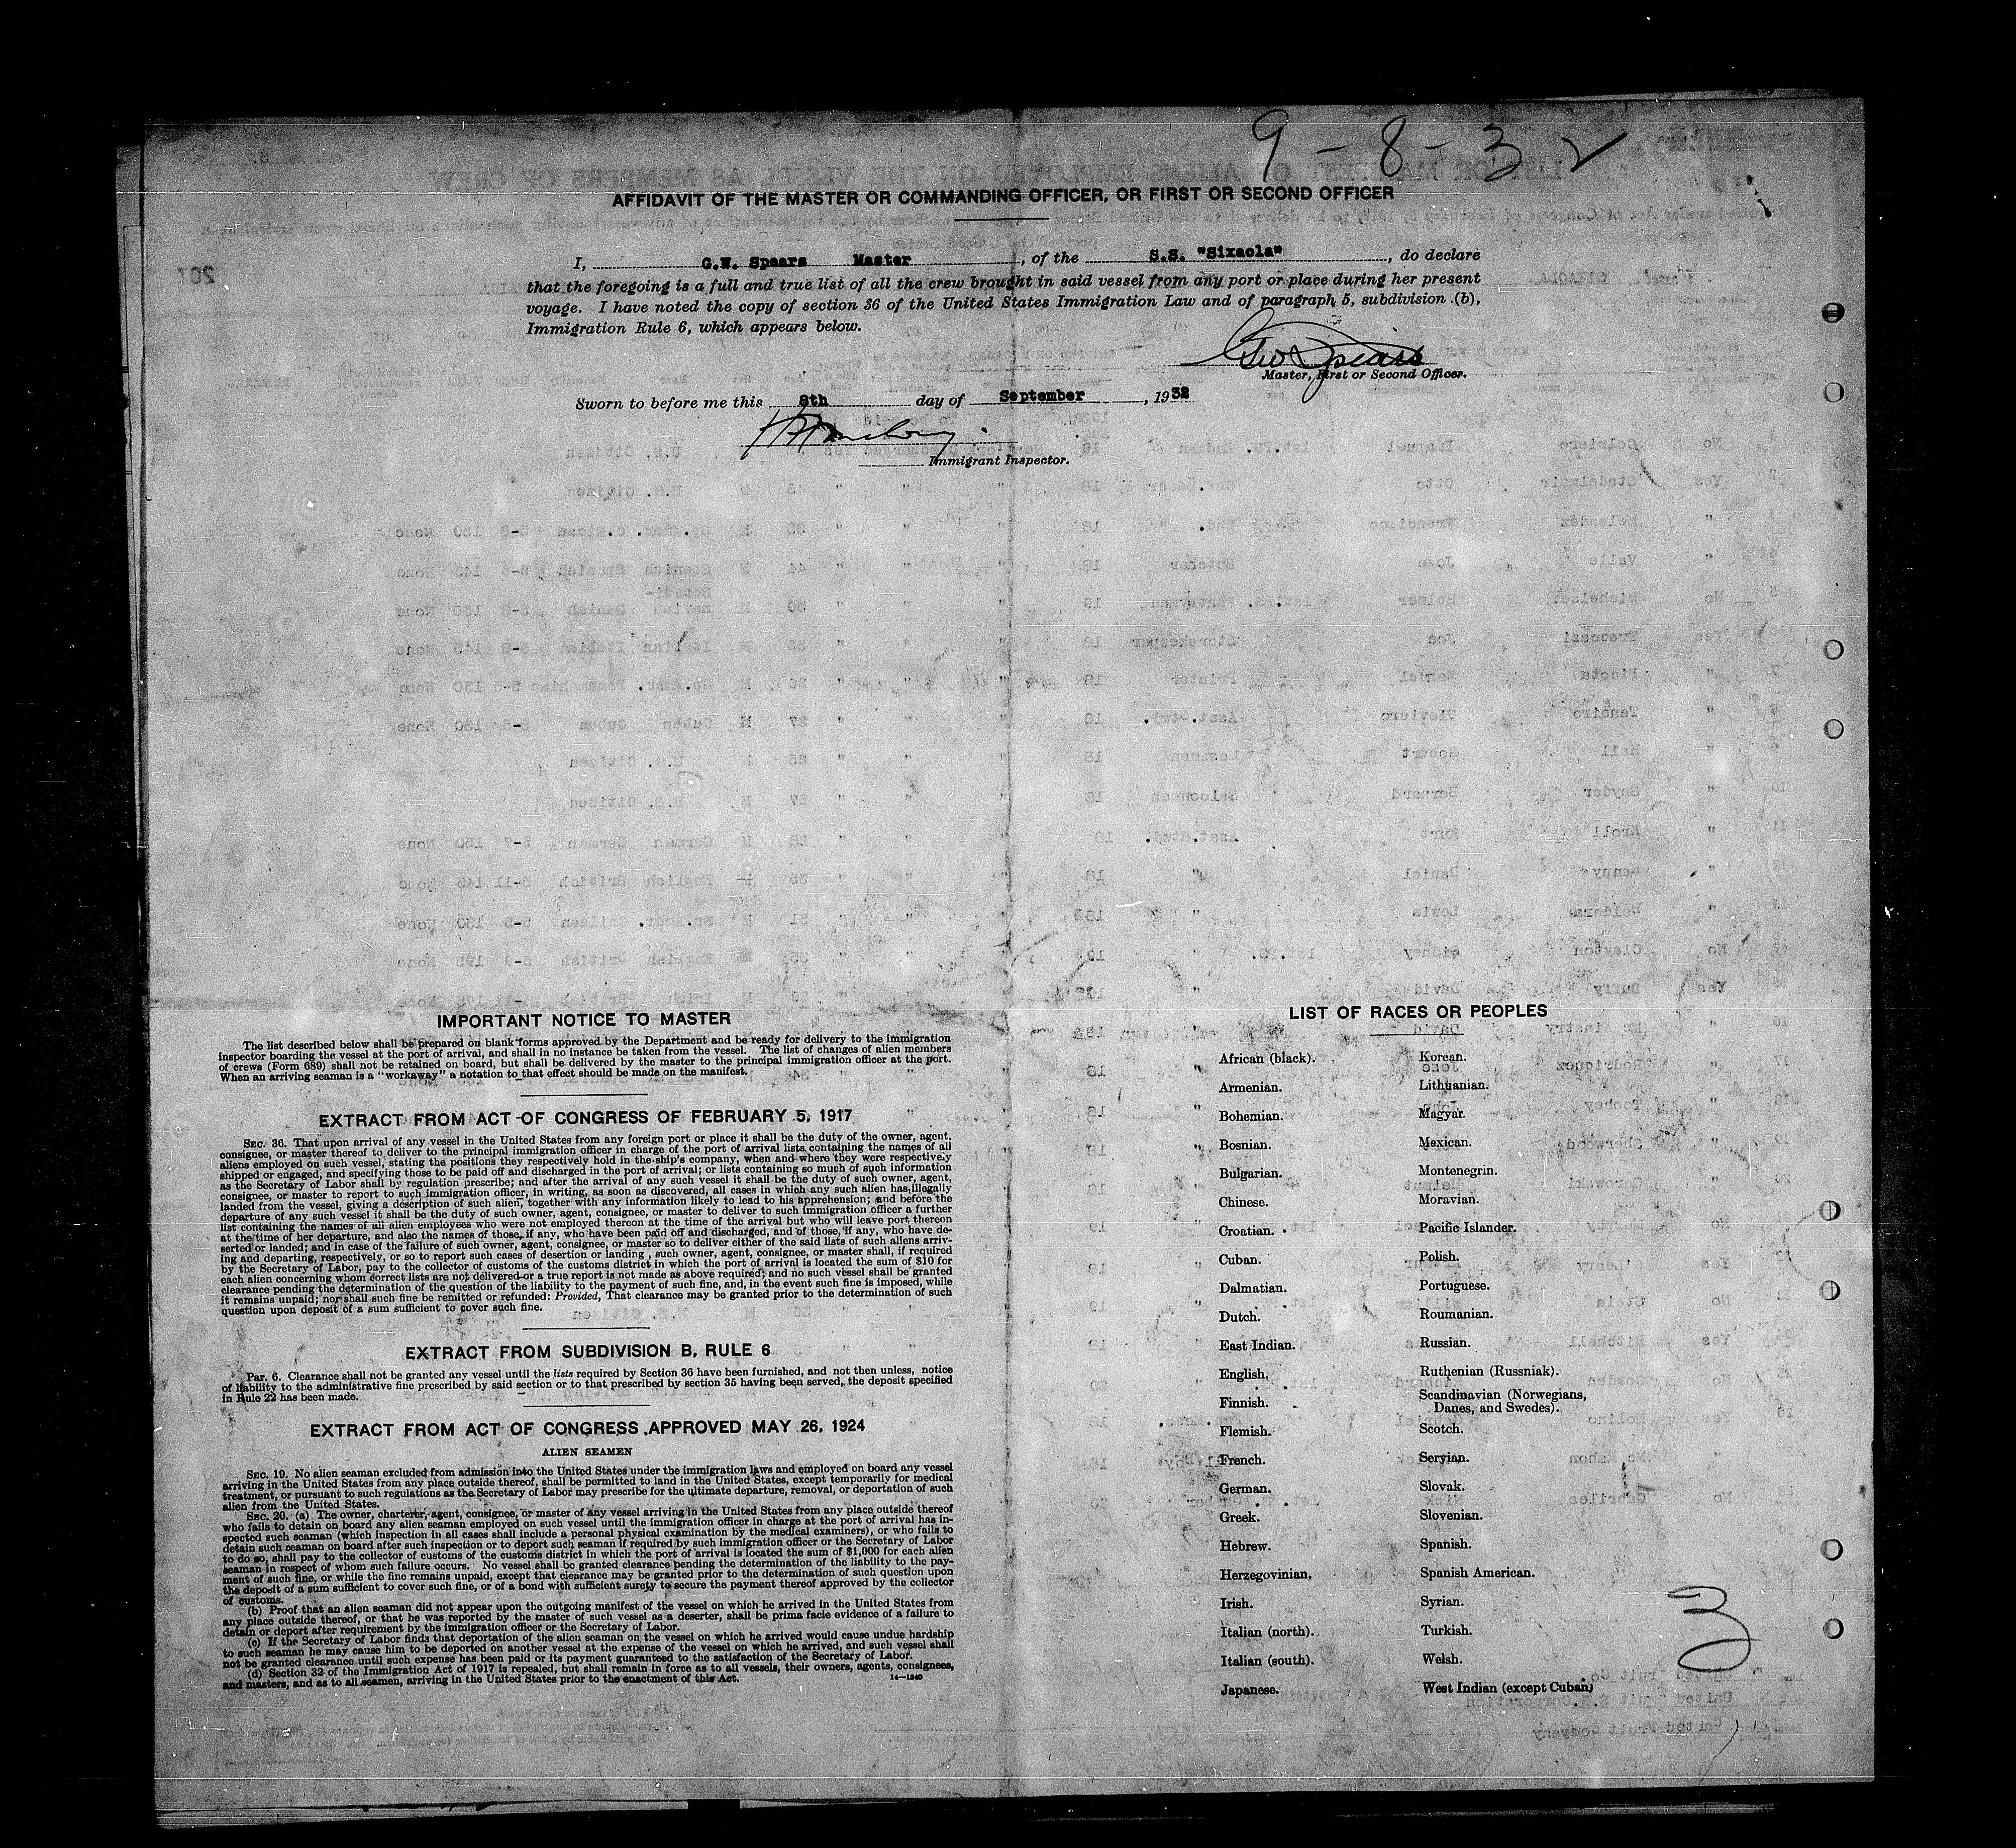 9-8-32
AFFIDAVIT OF THE MASTER OR COMMANDING OFFICER, OR FIRST OR SECOND OFFICER
I, G.W. Spears Master, of the S.S. "Sixaola", do declare
that the foregoing is a full and true list of all the crew brought in said vessel from any port or place during her present
voyage. I have noted the copy of section 36 of the United States Immigration Law and of paragraph 5, subdivision (b),
Immigration Rule 6, which appears below.
Geo Spears
Master, First or Second Officer.
Sworn to before me this 8th day of September, 1932
Immigrant Inspector.
IMPORTANT NOTICE TO MASTER
The list described below shall be prepared on blank forms approved by the Department and be ready for delivery to the immigration
inspector boarding the vessel at the port of arrival, and shall in no instance be taken from the vessel. The list of changes of alien members
of crews (Form 689) shall not be retained on board, but shall be delivered by the master to the principal immigration officer at the port.
When an arriving seaman is a "workaway" a notation to that effect should be made on the manifest.
EXTRACT FROM ACT OF CONGRESS OF FEBRUARY 5, 1917
SEC. 36. That upon arrival of any vessel in the United States from any foreign port or place it shall be the duty of the owner, agent,
consignee, or master thereof to deliver to the principal immigration officer in charge of the port of arrival lists containing the names of all
aliens employed on such vessel, stating the positions they respectively hold in the ship's company, when and where they were respectively
shipped or engaged, and specifying those to be paid off and discharged in the port of arrival; or lists containing so much of such information
as the Secretary of Labor shall by regulation prescribe; and after the arrival of any such vessel it shall be the duty of such owner, agent,
consignee, or master to report to such immigration officer, in writing, as soon as discovered, all cases in which any such alien has illegally
landed from the vessel, giving a description of such alien, together with any information likely to lead to his apprehension; and before the
departure of any such vessel it shall be the duty of such owner, agent, consignee, or master to deliver to such immigration officer a further
list containing the names of all alien employees who were not employed thereon at the time of the arrival but who will leave port thereon
at the time of her departure, and also the names of those, if any, who have been paid off and discharged, and of those, if any, who have de-
serted or landed; and in case of the failure of such owner, agent, consignee, or master so to deliver either of the said lists of such aliens arriv-
ing and departing, respectively, or so to report such cases of desertion or landing, such owner, agent, consignee, or master shall, if required
by the Secretary of Labor, pay to the collector of customs of the customs district in which the port of arrival is located the sum of $10 for
each alien concerning whom correct lists are not delivered or a true report is not made as above required; and no such vessel shall be granted
clearance pending the determination of the question of the liability to the payment of such fine, and, in the event such fine is imposed, while
it remains unpaid; nor shall such fine be remitted or refunded: Provided, That clearance may be granted prior to the determination of such
question upon deposit of a sum sufficient to cover such fine.
EXTRACT FROM SUBDIVISION B, RULE 6
Par. 6. Clearance shall not be granted any vessel until the lists required by Section 36 have been furnished, and not then unless, notice
of liability to the administrative fine prescribed by said section or to that prescribed by section 35 having been served, the deposit specified
in Rule 22 has been made.
EXTRACT FROM ACT OF CONGRESS APPROVED MAY 26, 1924
ALIEN SEAMEN
SEC. 19. No alien seaman excluded from admission into the United States under the immigration laws and employed on board any vessel
arriving in the United States from any place outside thereof, shall be permitted to land in the United States, except temporarily for medical
treatment, or pursuant to such regulations as the Secretary of Labor may prescribe for the ultimate departure, removal, or deportation of such
alien from the United States.
SEC. 20. (a) The owner, charterer, agent, consignee, or master of any vessel arriving in the United States from any place outside thereof
who fails to detain on board any alien seaman employed on such vessel until the immigration officer in charge at the port of arrival has in-
spected such seaman (which inspection in all cases shall include a personal physical examination by the medical examiners), or who fails to
detain such seaman on board after such inspection or to deport such seaman if required by such immigration officer or the Secretary of Labor
to do so, shall pay to the collector of customs of the customs district in which the port of arrival is located the sum of $1,000 for each alien
seaman in respect of whom such failure occurs. No vessel shall be granted clearance pending the determination of the liability to the pay-
ment of such fine, or while the fine remains unpaid, except that clearance may be granted prior to the determination of such question upon
the deposit of a sum sufficient to cover such fine, or of a bond with sufficient surety to secure the payment thereof approved by the collector
of customs.
(b) Proof that an alien seaman did not appear upon the outgoing manifest of the vessel on which he arrived in the United States from
any place outside thereof, or that he was reported by the master of such vessel as a deserter, shall be prima facie evidence of a failure to
detain or deport after requirement by the immigration officer or the Secretary of Labor.
(c) If the Secretary of Labor finds that deportation of the alien seaman on the vessel on which he arrived would cause undue hardship
to such seaman he may cause him to be deported on another vessel at the expense of the vessel on which he arrived, and such vessel shall
not be granted clearance until such expense has been paid or its payment guaranteed to the satisfaction of the Secretary of Labor.
(d) Section 32 of the Immigration Act of 1917 is repealed, but shall remain in force as to all vessels, their owners, agents, consignees,
and masters, and as to all seamen, arriving in the United States prior to the enactment of this Act. 14-1240
LIST OF RACES OR PEOPLES
African (black).
Armenian.
Bohemian.
Bosnian.
Bulgarian.
Chinese.
Croatian.
Cuban.
Dalmatian.
Dutch.
East Indian.
English.
Finnish.
Flemish.
French.
German.
Greek.
Hebrew.
Herzegovinian.
Irish.
Italian (north).
Italian (south).
Japanese.
Korean.
Lithuanian.
Magyar.
Mexican.
Montenegrin.
Moravian.
Pacific Islander.
Polish.
Portuguese.
Roumanian.
Russian.
Ruthenian (Russniak).
Scandinavian (Norwegians,
Danes, and Swedes).
Scotch.
Servian.
Slovak.
Slovenian.
Spanish.
Spanish American.
Syrian.
Turkish.
Welsh.
West Indian (except Cuban)
3